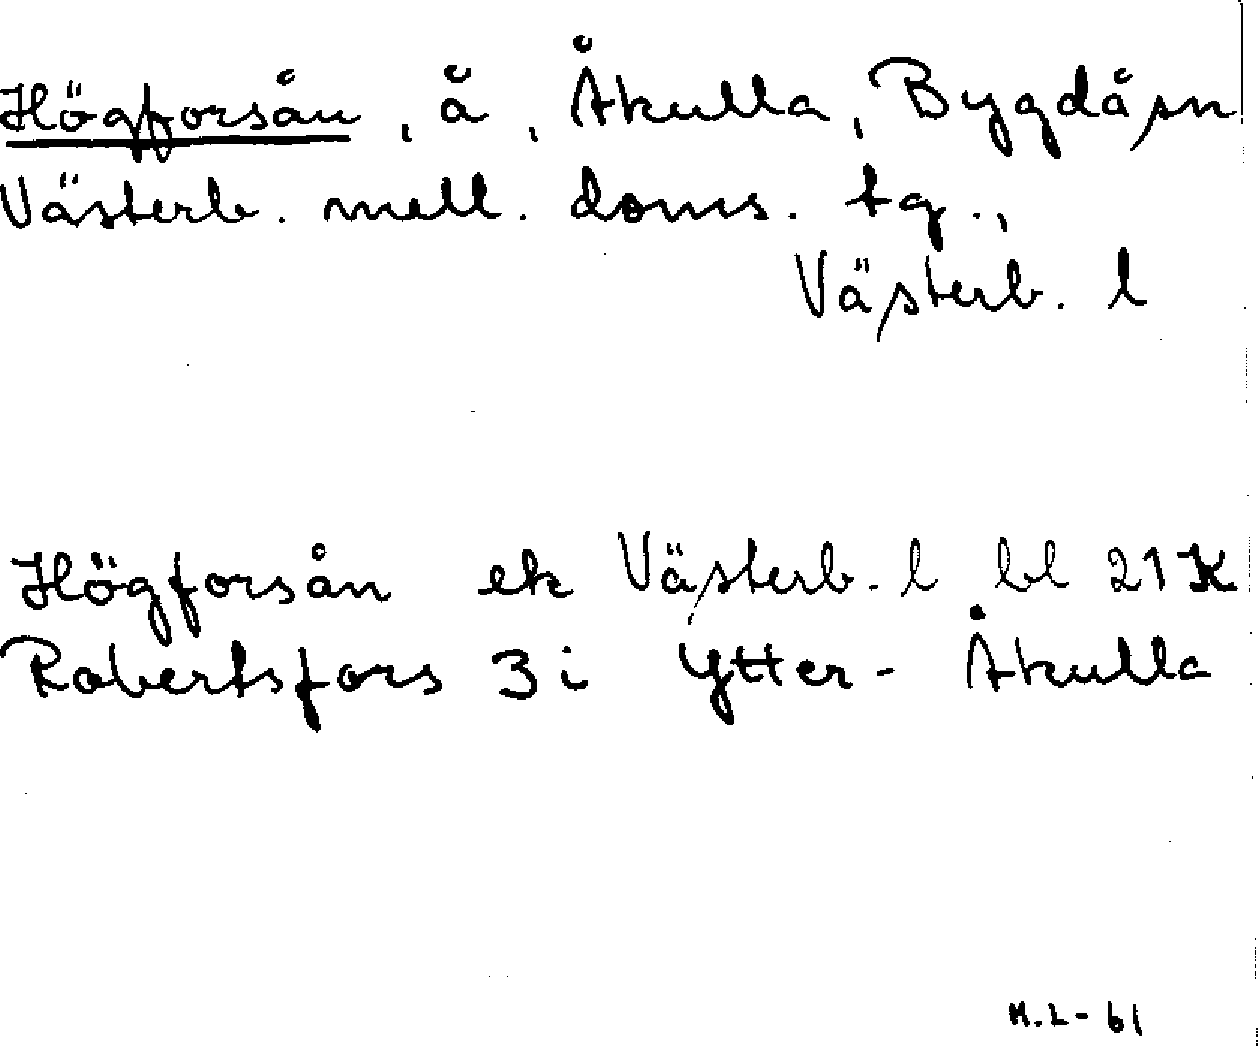 Högforsån, å, Åkulla, Bygdå sn
Västerb. mell. doms. tg.,
Västerb. l
Högforsån ek Västerb. l bl 21 K
Robertsfors 3 i Ytter-Åkulla
M.L-61